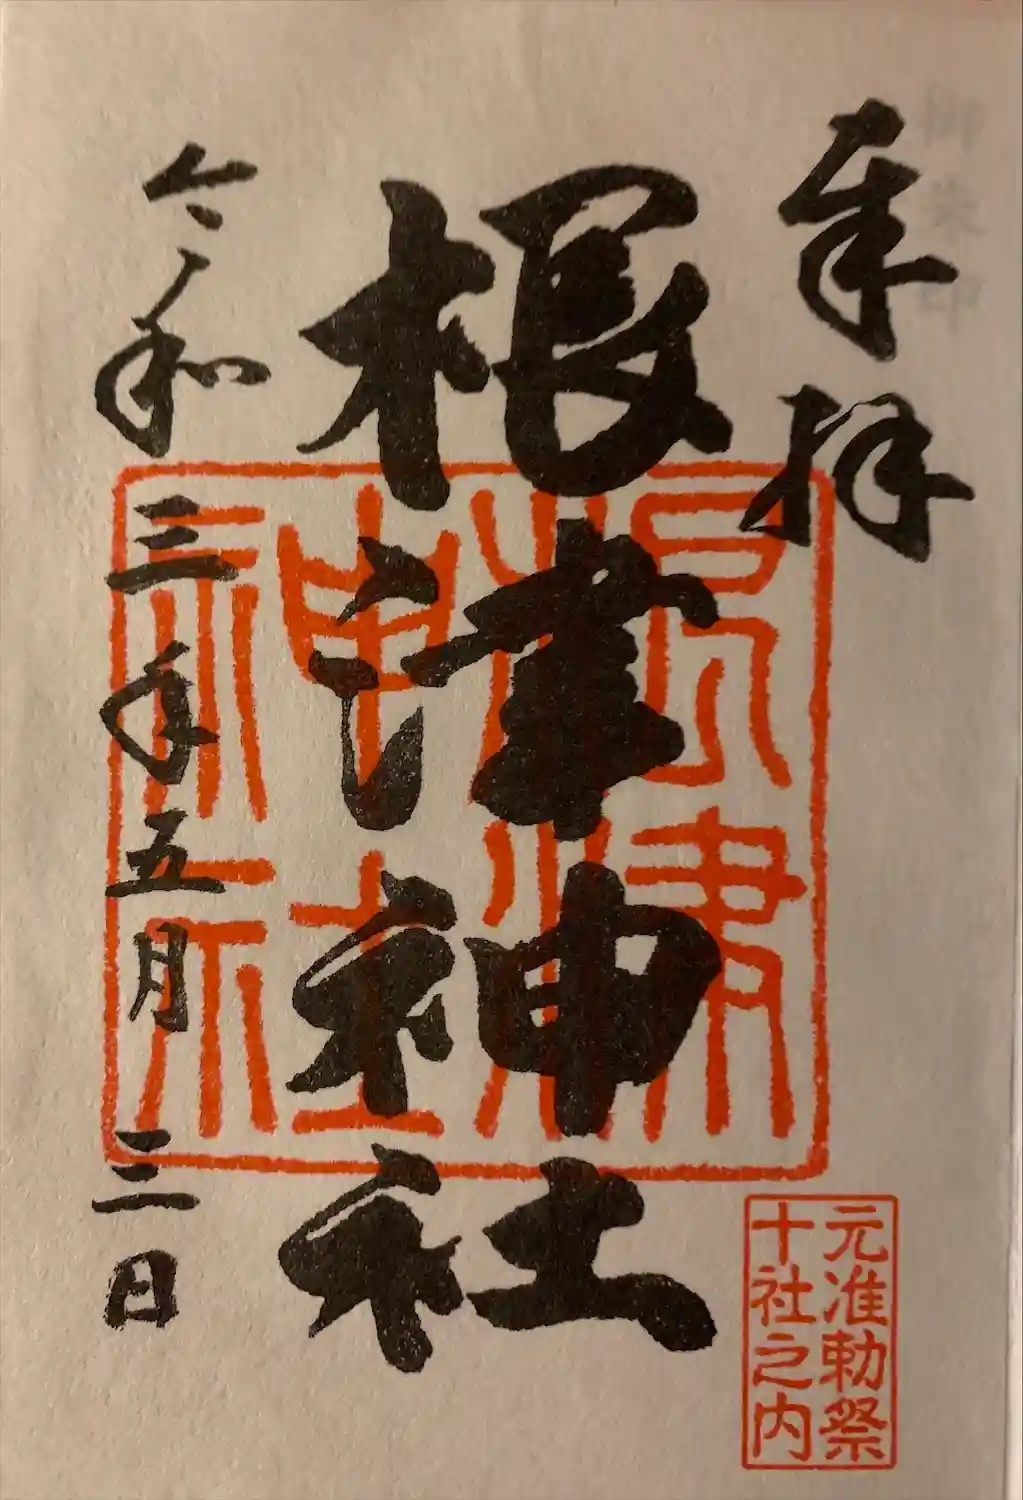 奉拝
根津神社
令和三年五月二日
根津神社
元准勅祭
十社之内